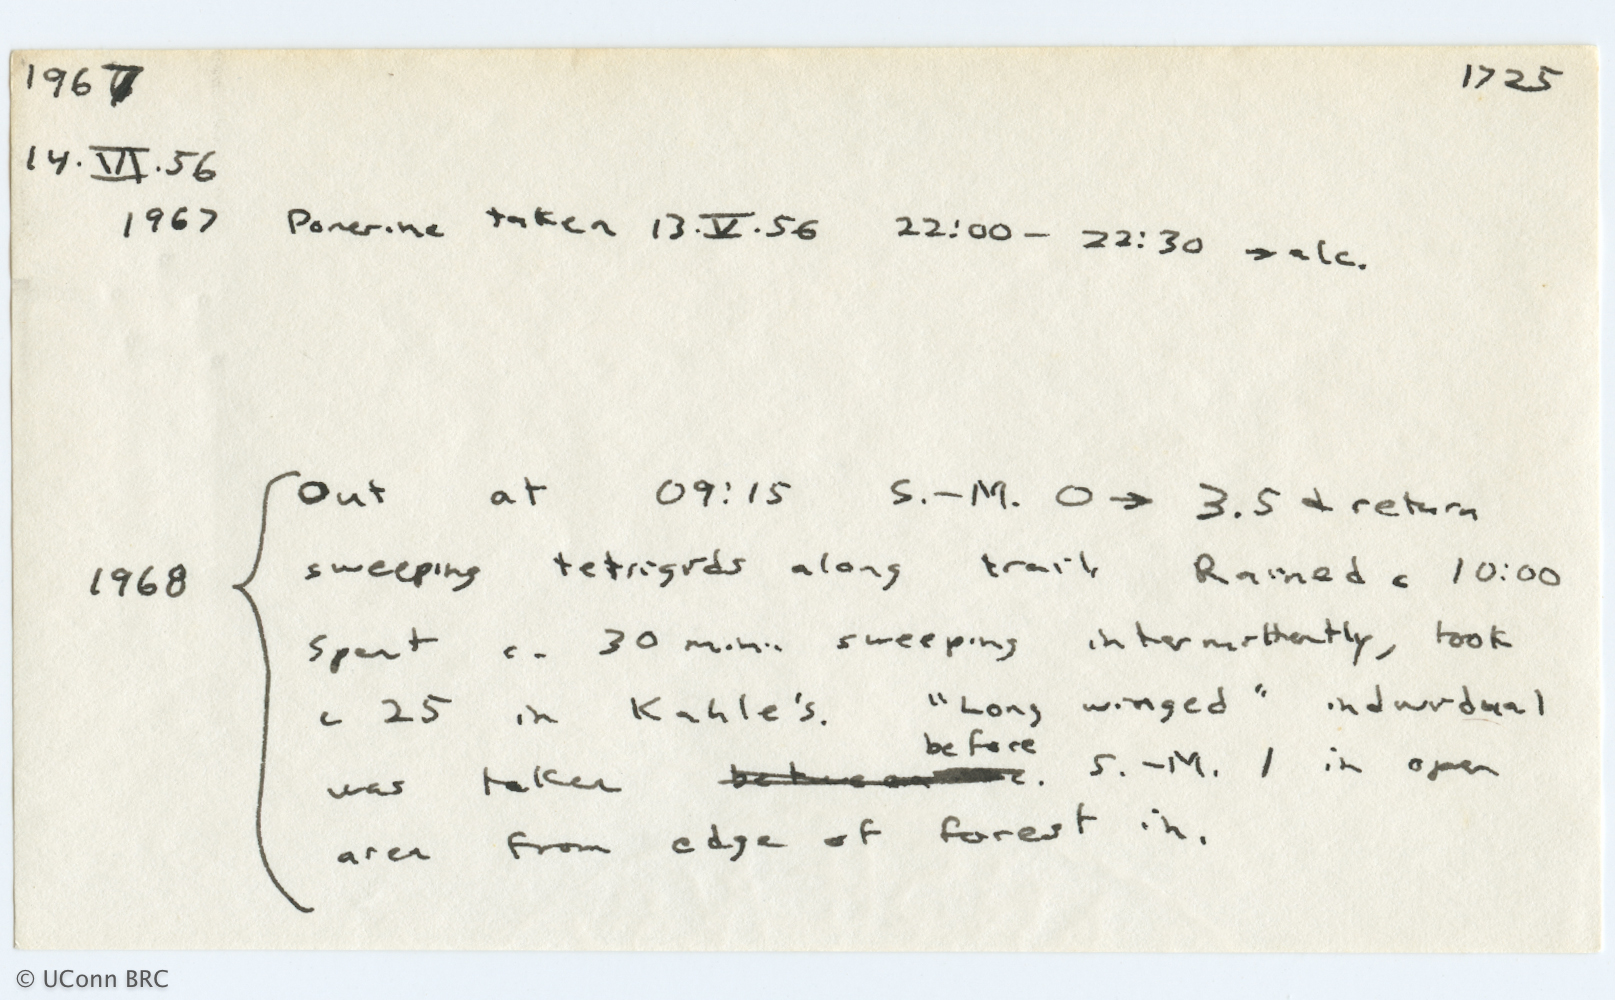 1967 1725
14.VI.56
1967 Ponerine taken 13.V.56 22:00 - 22:30 → alc.
Out at 09:15 S.-M. 0 → 3.5 & return
sweeping tetrigids along trail. Rained c 10:00
1968 Spent c. 30 min. sweeping intermittently, took
c 25 in Kahle's. "Long winged" individual
before
was taken between c. S.-M. 1 in open
area from edge of forest in.
© UConn BRC